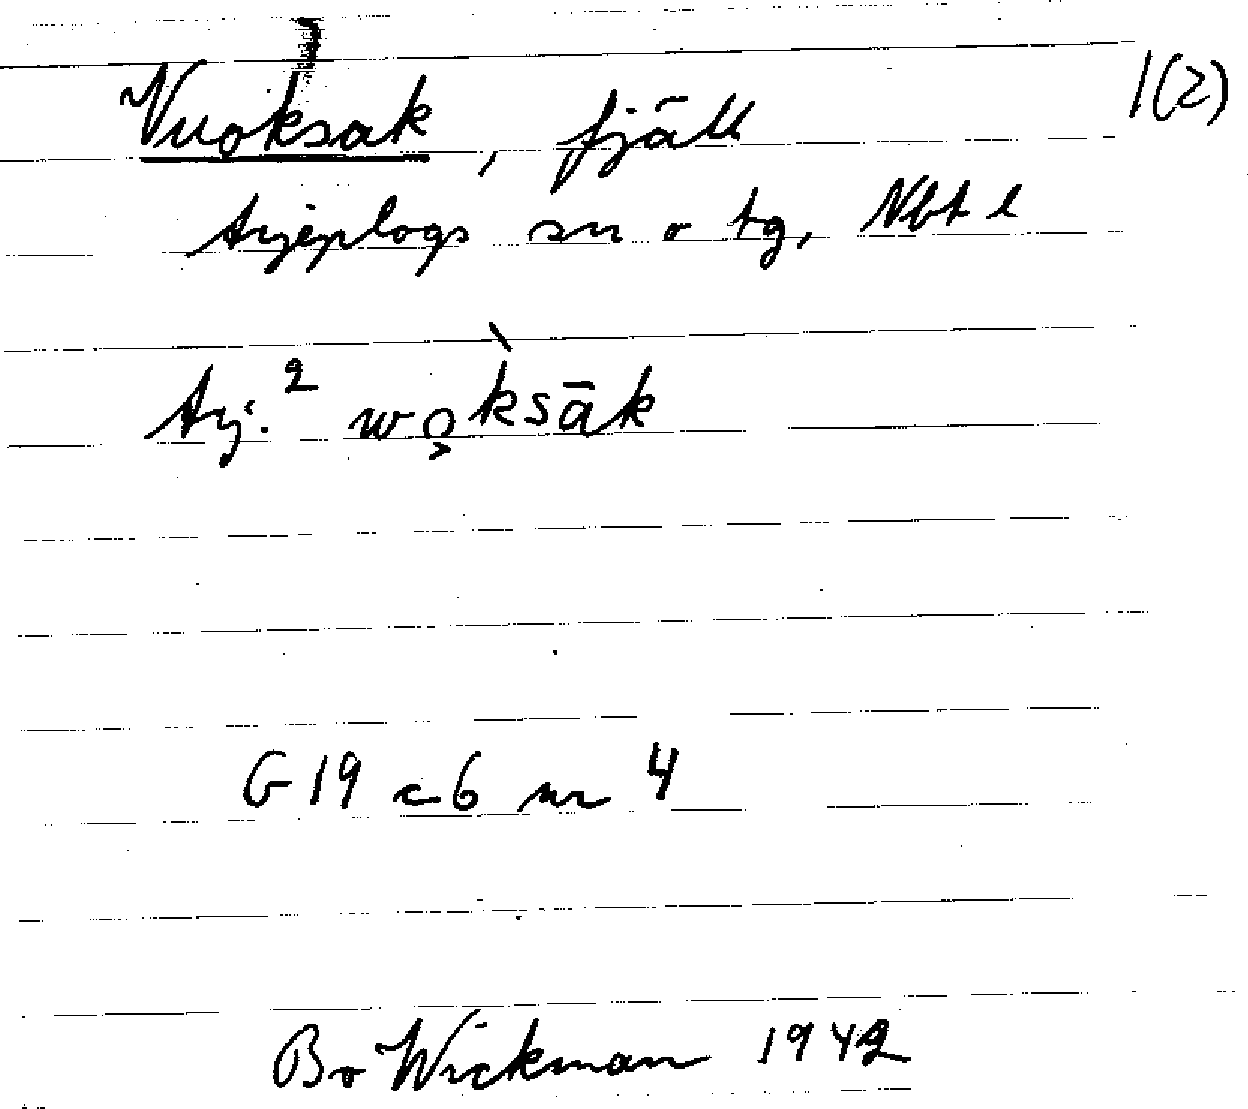 Vuoksak, fjäll 1(2)
Arjeplogs sn o tg, Nbt l
Arj.² wo̭k̀sāk
G 19 c 6 nr 4
Bo Wickman 1942